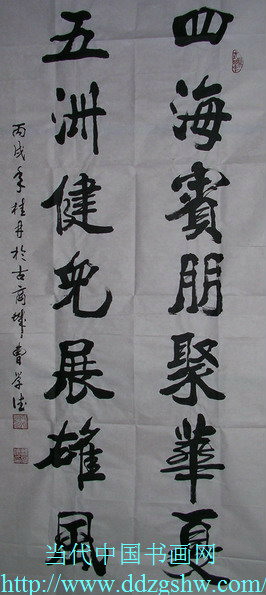 四海賓朋聚華夏
五洲健兒展雄風
丙戌年桂月於古商城曹学德
当代中国书画网
http://www.ddzgshw.com/